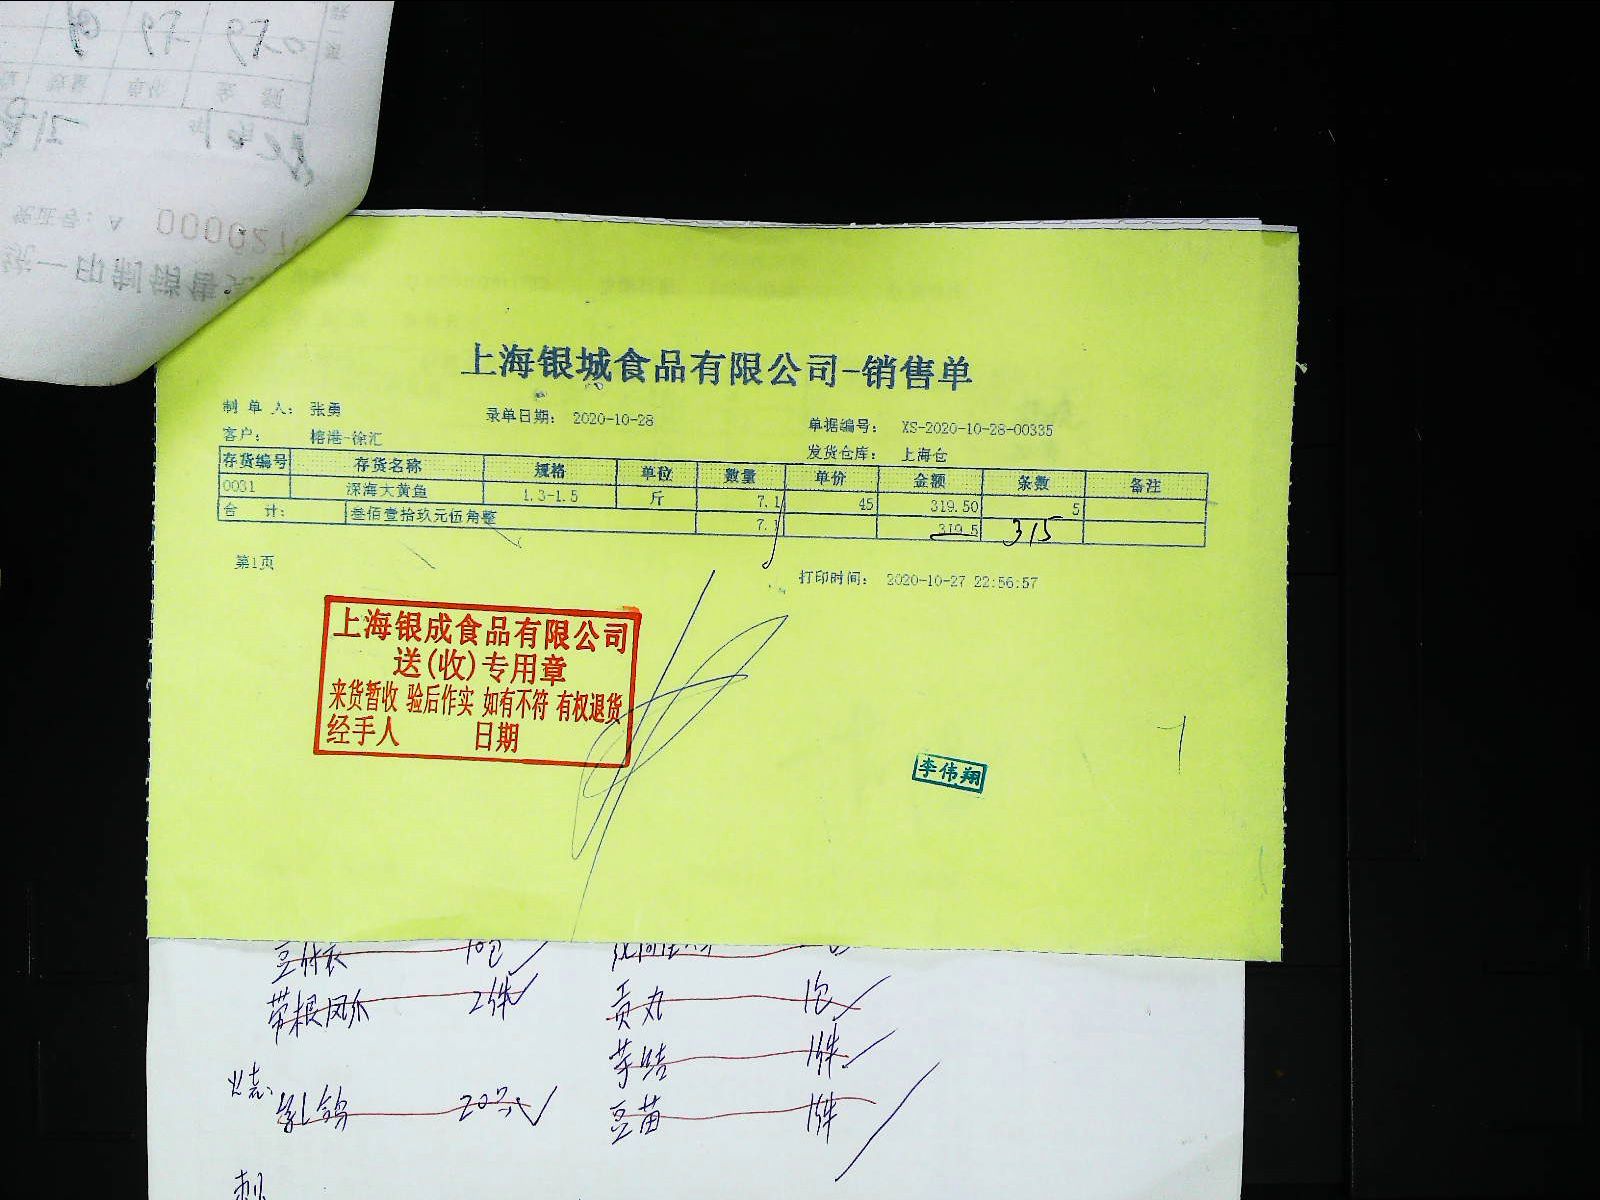 00002
统一印制
上海银城食品有限公司-销售单
制单人: 张勇 录单日期: 2020-10-28 单据编号: XS-2020-10-28-00335
客户: 榕港-徐汇 发货仓库: 上海仓
存货编号 存货名称 规格 单位 数量 单价 金额 条数 备注
0031 深海大黄鱼 1.3-1.5 斤 7.1 45 319.50 5
合计: 叁佰壹拾玖元伍角整 7.1 319.5 315
第1页 打印时间: 2020-10-27 22:56:57
上海银成食品有限公司
送(收)专用章
来货暂收 验后作实 如有不符 有权退货
经手人 日期
李伟翔
10包
带根凤爪 2件 贡丸 1包
芋结 1件
烧: 乳鸽 20只 豆苗 1件
刺